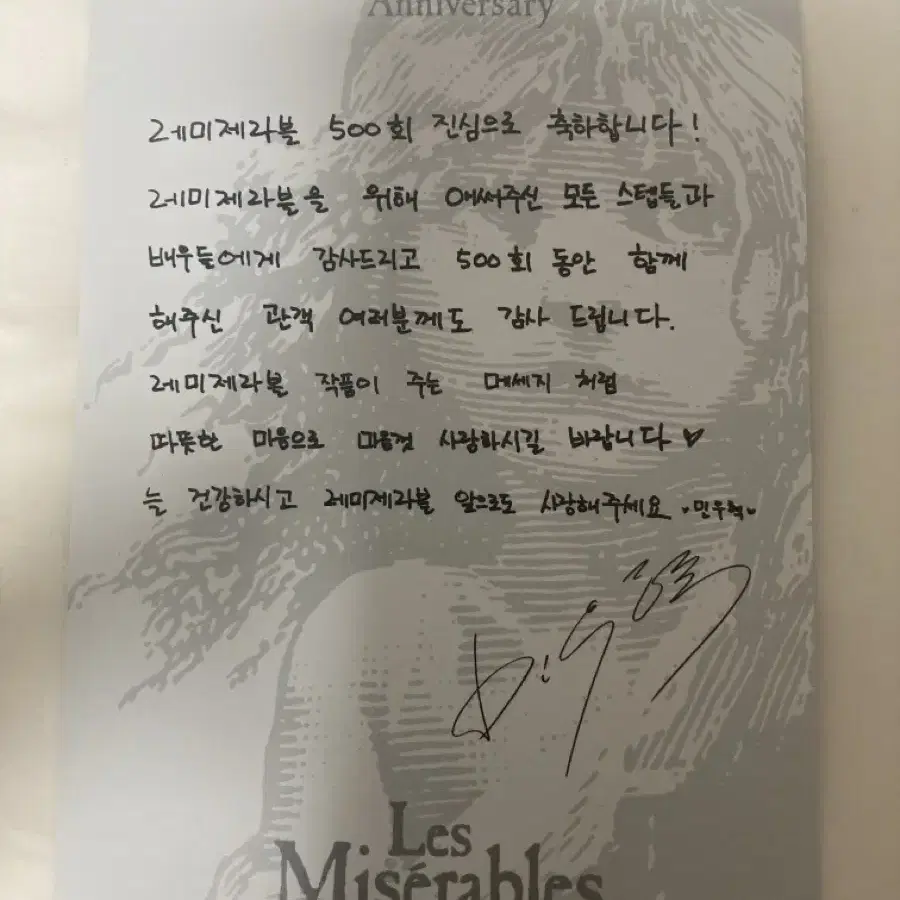 Anniversary
레미제라블 500회 진심으로 축하합니다!
레미제라블을 위해 애써주신 모든 스텝들과
배우들에게 감사드리고 500회 동안 함께
해주신 관객 여러분께도 감사 드립니다.
레미제라블 작품이 주는 메세지 처럼
따뜻한 마음으로 마음껏 사랑하시길 바랍니다 ♡
늘 건강하시고 레미제라블 앞으로도 사랑해주세요 -민우혁-
Les
Misérables